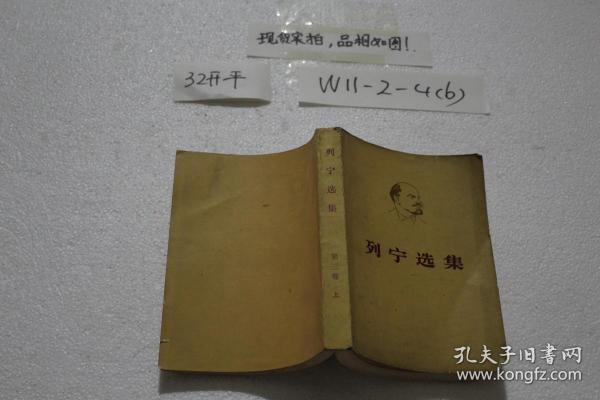 现货实拍，品相如图！.
32开平
W11-2-4(b)
列宁选集
第二卷 上
列宁选集
孔夫子旧书网
www.kongfz.com